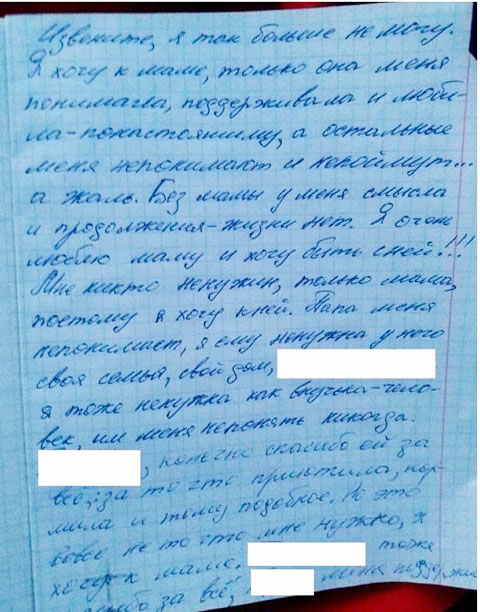 Извените, я так больше не могу.
Я хочу к маме, только она меня
понимала, поддерживала и люби-
ла-понастояшиму, а остальные
меня непонимают и непоймут...
а жаль. Без мамы у меня смысла
и продолжения-жизни нет. Я очень
люблю маму и хочу быть сней!!!
Мне никто ненужин, только мама,
поэтому я хочу кней. Папа меня
непонимает, я ему ненужна у него
своя семья, свой дом,
я тоже ненужна как внучька-чело-
век, им меня непонять никогда.
, конечно спасибо ей за
всё, за то что приютила, кор-
мила и тому подобное. Но это
вовсе не то что мне нужно, я
хочу к маме. тоже
за всё, меня поддержи